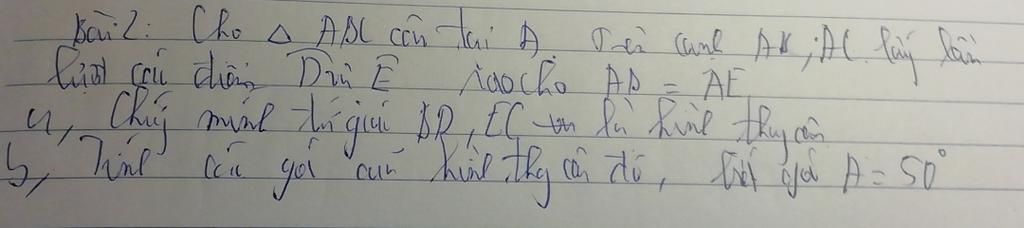 Bài 2: Cho △ ABC cân tại A. Trên cạnh AB, AC lấy lần
lượt các điểm D và E sao cho AD = AE
a, Chứng minh tứ giác BD, EC là hình thg cân
b, Tính các góc của hình thg cân đó, biết góc A = 50°